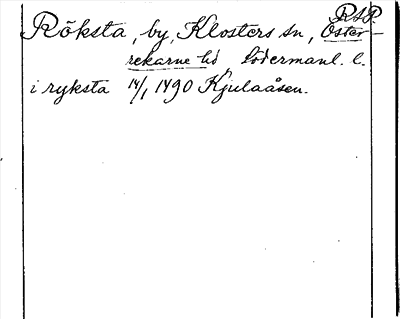 RAP
Röksta, by, Klosters sn, Öster-
rekarne hd, Södermanl. l.
i ryksta 14/1 1490 Kjulaåsen.